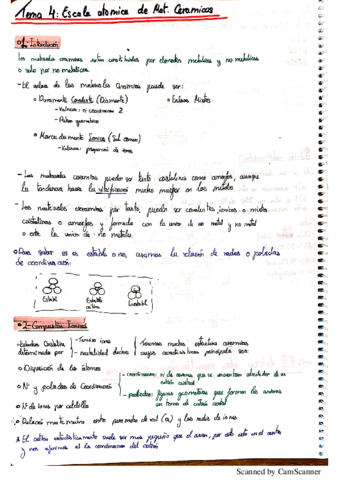 Tema 4: Escala atomica de Mat. Ceramicos
01-Introducción
Los materiales ceramicos estan constituidos por elementos metalicos y no metalicos
o solo por no metalicos.
- El enlace de los materiales ceramicos puede ser:
o Puramente Covalente (Diamante)
o Enlaces Mixtos
- Valencia: nº coordinacion 2
o Marcadamente Ionico (Sal comun)
- Valencia: proporcion de iones
- Los materiales ceramicos pueden ser tanto cristalinos como amorfos, aunque
la tendencia hacia la vitrificacion mucho mayor en los metales
- Los materiales ceramicos por tanto, pueden ser covalentes, ionicos o mixtos
cristalinos o amorfos y formado con la union de un metal y no metal
o este la union de no metales.
o Para saber si es estable o no, usamos la relación de radios o poliedros
de coordinación:
Estable
Estable
Inestable
02-Compuestos Ionicos
- Estructura Cristalina
determinada por
- Tamaño iones
- neutralidad electrica
Tenemos muchas estructuras ceramicas
cuyas caracteristicas principales son:
o Disposición de los átomos
o Nº y poliedros de Coordinación
- coordinacion: nº de aniones que se encuentran alrededor de un
cation central
- poliedros: figuras geometricas que forman los aniones
en torno al cation central
o Nº de iones por celdilla
o Relación matematica entre parametro de red (a) y los radios de iones
* El cation estadisticamente suele ser mas pequeño que el anion, por esto esta en el centro
y nos referimos al la coordinacion del cation
Scanned by CamScanner